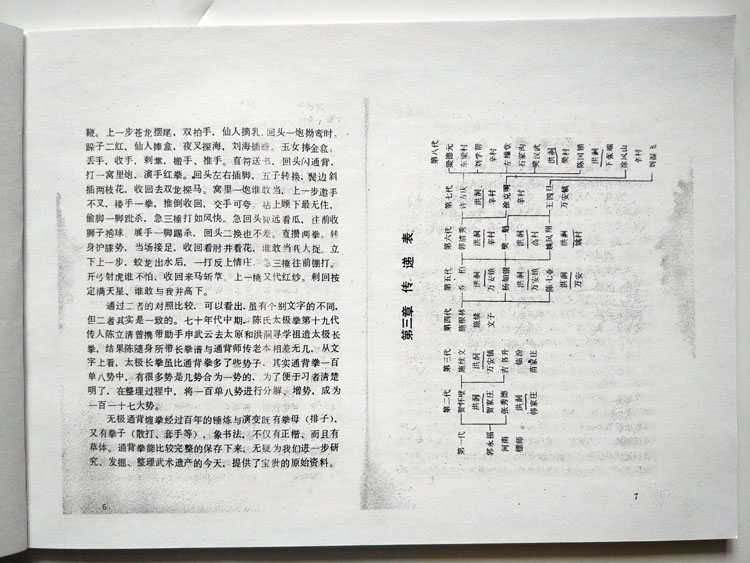 鞭。上一步苍龙摆尾，双拍手，仙人摘乳，回头一炮拗鸾肘。
跺子二红，仙人捧盒，夜叉探海，刘海捕蟾。玉女捧金盒，
丢手，收手，刺掌，搬手，推手。直符送书，回头闪通背，
打一窝里炮。演手红拳。回头左右插脚，五子转换，鬓边斜
插两枝花，收回去双龙探马。窝里一炮谁敢当，上一步邀手
不叉，搂手一拳，推倒收回，交手可夸，站上顾下最无住，
偷脚一脚跐杀，急三捶打如风快。急回头智远看瓜，往前收
狮子抱球。展手一脚踢杀，回头二换也不差。直攒两拳。转
身护膝势，当场接足，收回看肘并看花，谁敢当我大捉。立
下上一步，蛟龙出水后，一打反上情庄。急三捶往前掤打。
开弓射虎谁不怕，收回来马斩草，上一挑又代红炒。刺回按
定满天星，谁敢与我并高下。
通过二者的对照比较，可以看出，虽有个别文字的不同，
但二者其实是一致的。七十年代中期，陈氏太极拳第十九代
传人陈立清曾携带助手申武云去太原和洪洞寻学祖造太极长
拳，结果陈随身所带长拳谱与通背师传老本相差无几，从文
字上看，太极长拳虽比通背拳多了些势子，其实通背拳一百
单八势中，有很多势是几势合为一势的，为了便于习者清楚
明了，在整理过程中，将一百单八势进行分解，增势，成为
一百一十七大势。
无极通背缠拳经过百年的锤炼与演变既有拳母（排子），
又有拳子（散打、套手等），象书法，不仅有正楷，而且有
草体。通背拳能比较完整的保存下来，无疑为我们进一步研
究、发掘、整理武术遗产的今天，提供了宝贵的原始资料。
6
第三章 传 递 表
第一代
郭永福
河南
镖师
第二代
贺怀璧
洪洞
贺家庄
张秀德
洪洞
韩家庄
第三代
施续文
洪洞
万安镇
吉书升
临汾
苗家庄
第四代
施根林
施续
文子
第五代
乔柏
洪洞
万安镇
杨如梁
洪洞
万安镇
陈七业
洪洞
万安
第六代
郭清秀
洪洞
辛村
樊一魁
洪洞
高村
姚凤翔
洪洞
姚村
第七代
许万庆
洪洞
辛村
徐克明
洪洞
辛村
王四旦
万安镇
第八代
梁德元
东梁村
刘学智
辛村
左耀堂
石家沟
樊汉武
洪洞
樊村
陈国镇
洪洞
下张端
徐凤山
辛村
刘振飞
7